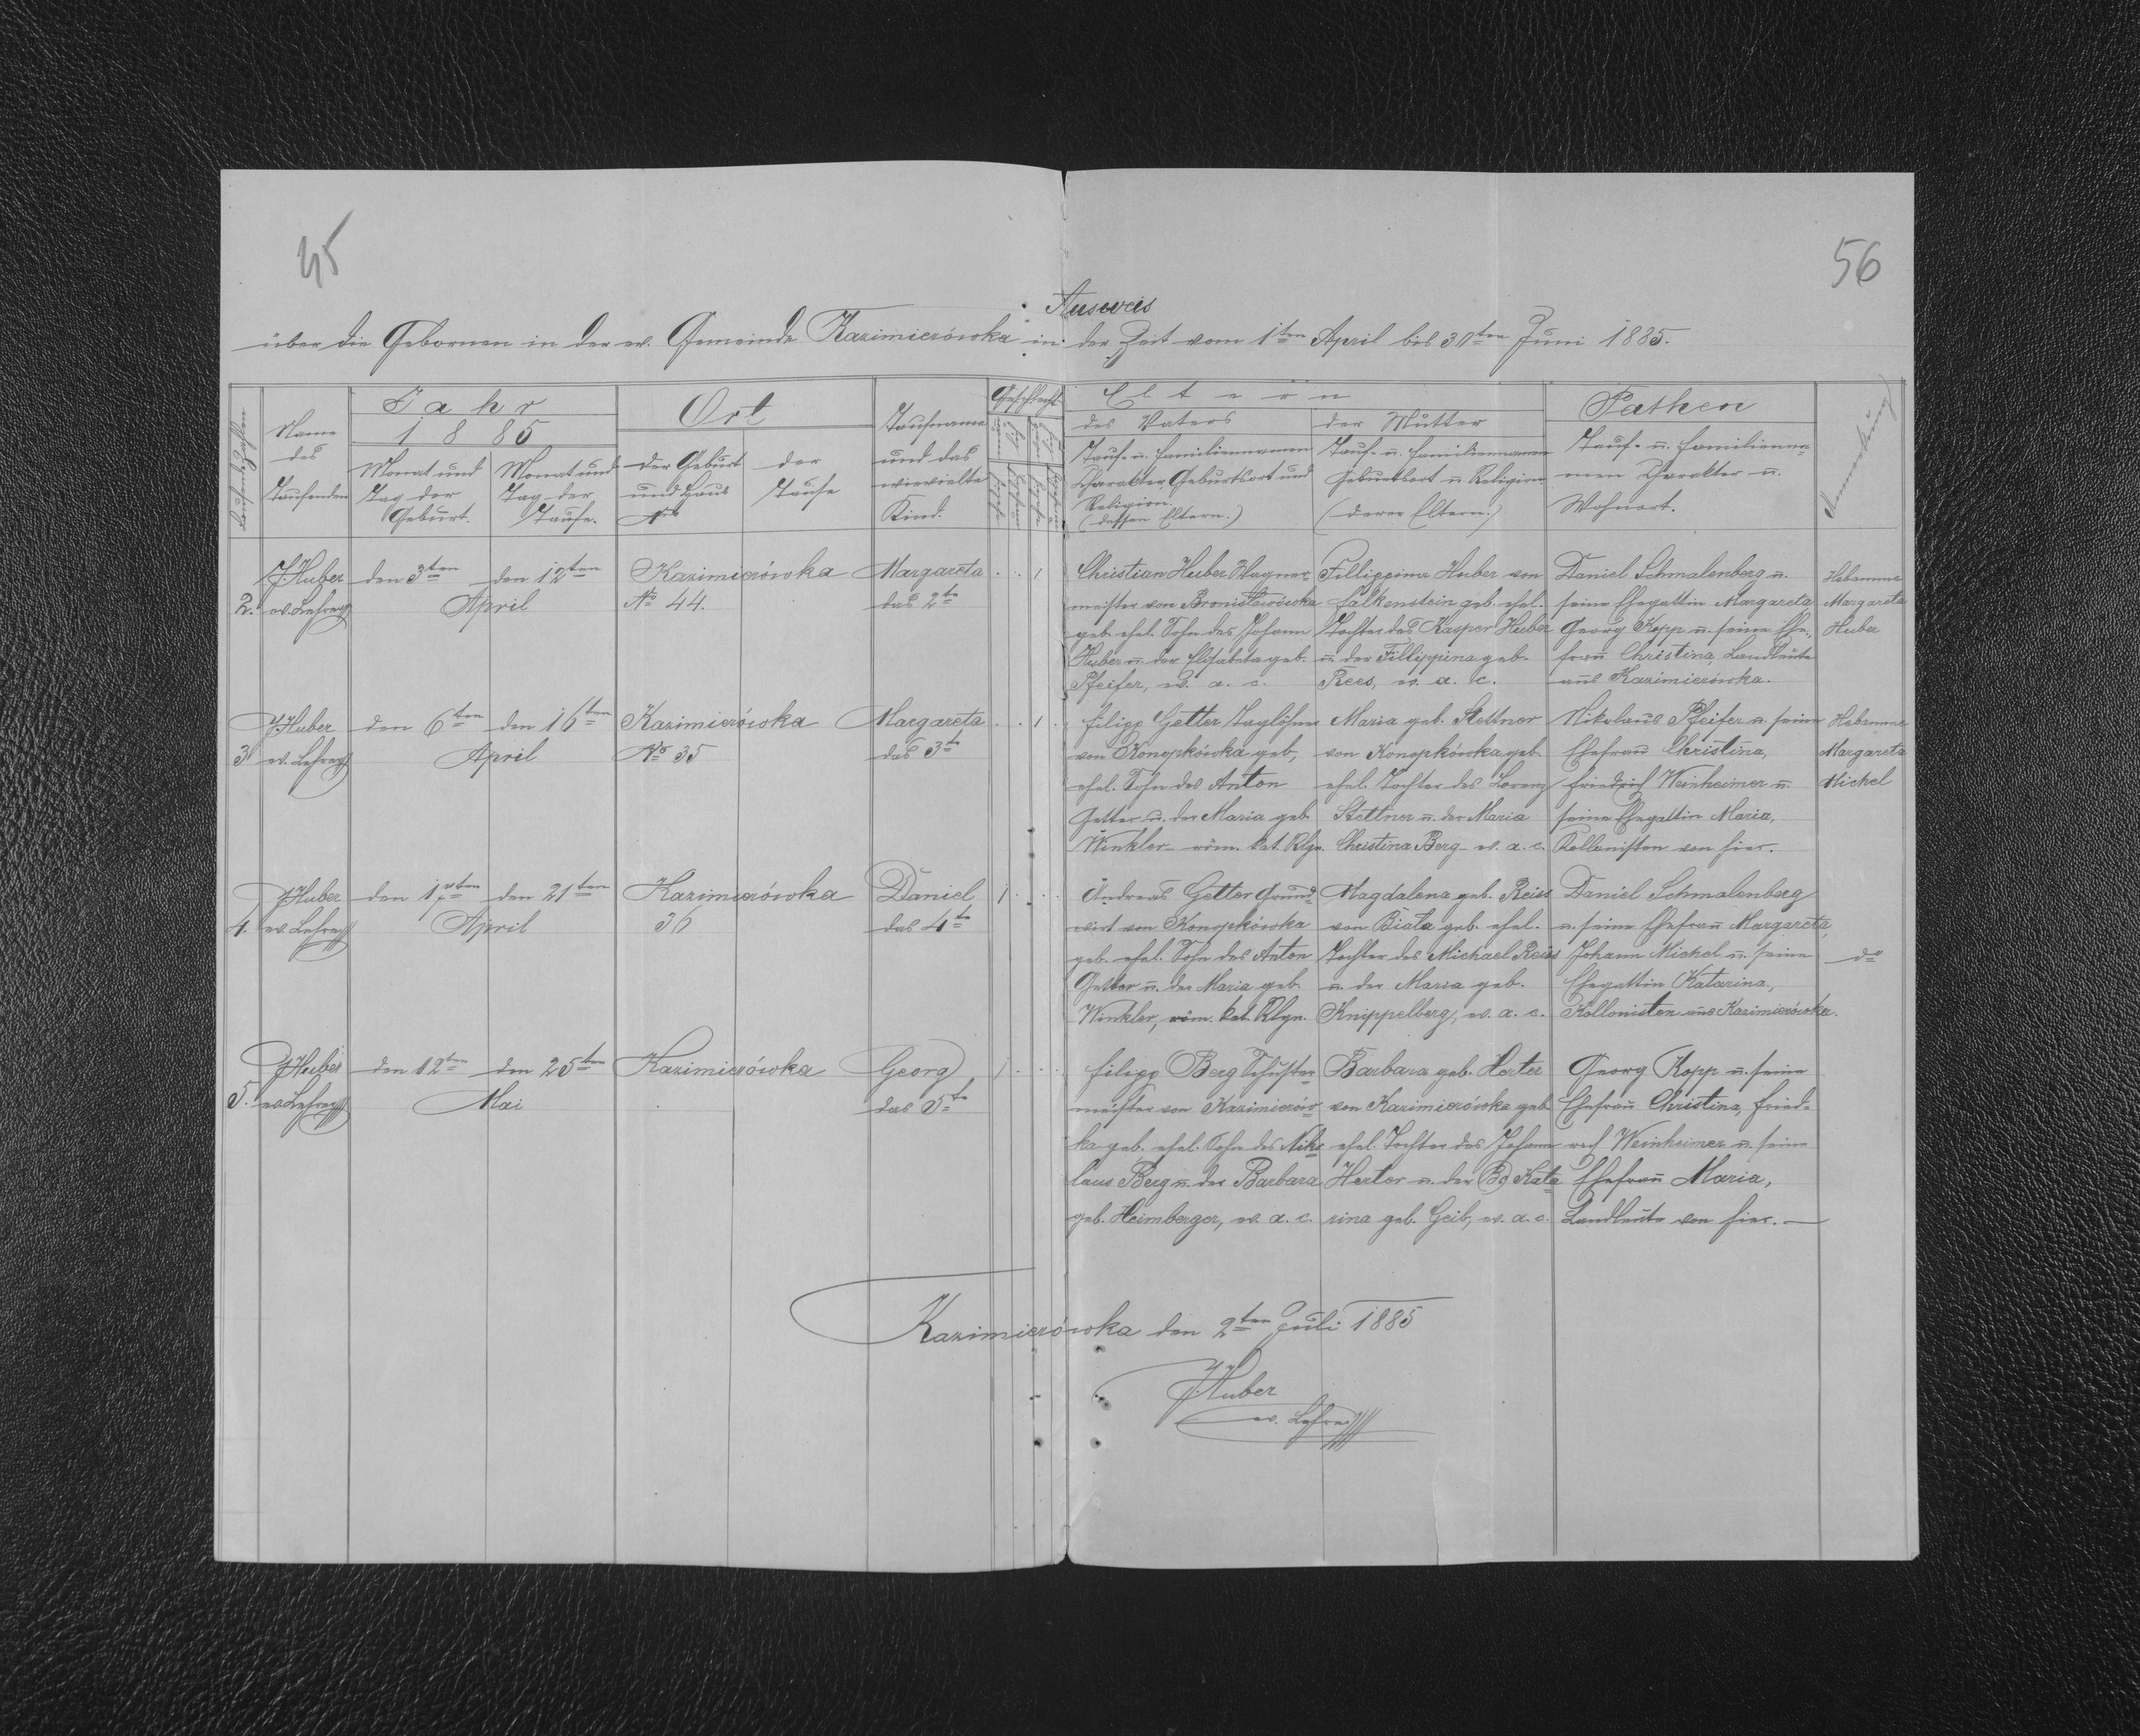 45
56
Ausweis
über die Gebornen in der ev. Gemeinde Kazimierówka in der Zeit vom 1ten April bis 30ten Juni 1885.
Name des Taufenden
Jahr 1885
Monat und Tag der Geburt.
Monat und Tag der Taufe.
Ort
der Geburt und Haus No
der Taufe
Taufname und das wievielte Kind.
Geschlecht
Eltern
des Vaters
Tauf- u. Familiennamen
Charakter Geburtsort und
Religion.
(dessen Eltern.)
der Mutter
Tauf- u. Familiennamen
Geburtsort u Religion
(deren Eltern.)
Pathen
Tauf- u. Familienna-
men Charakter u.
Wohnort.
Anmerkung
2.
J Huber
ev. Lehrer
den 3ten
den 12ten
April
Kazimierówka
No 44.
Margareta
das 2te
1
Christian Huber Wagner
meister von Bronisławówka
geb. ehel. Sohn des Johann
Huber u. der Elisabeta geb.
Pfeifer, ev. a. c.
Fillippina Huber von
Falkenstein geb. ehel.
Tochter des Kasper Huber
u. der Fillippina geb.
Rees, ev. a. c.
Daniel Schmalenberg u.
seine Ehegattin Margareta,
Georg Kopp u. seine Ehe-
frau Christina, Landleute
aus Kazimierówka.
Hebamme
Margareta
Huber
3
J Huber
ev. Lehrer
den 6ten
den 16ten
April
Kazimierówka
No 35
Margareta
das 3te
1
Filipp Getter Taglöhner
von Konopkówka geb,
ehel. Sohn des Anton
Getter u. der Maria geb
Winkler röm. kat. Rlgn.
Maria geb. Stettner
von Konopkówka geb.
ehel. Tochter des Lorenz
Stettner u. der Maria
Christina Berg ev. a. c.
Nikolaus Pfeifer u. seine
Ehefrau Christina,
Friedrich Weinheimer u.
seine Ehegattin Maria,
Kollonisten von hier.
Hebamme
Margareta
Michel
4.
J Huber
ev. Lehrer
den 17ten
den 21ten
April
Kazimierówka
36
Daniel
das 4te
1
Andreas Getter Grund-
wirt von Konopkówka
geb. ehel. Sohn des Anton
Getter u. der Maria geb.
Winkler, röm. kat. Rlgn.
Magdalena geb. Reiss
von Biała geb. ehel.
Tochter des Michael Reiss
u. der Maria geb.
Knippelberg, ev. a. c.
Daniel Schmalenberg
u. seine Ehefrau Margareta,
Johann Michel u. seine
Ehegattin Katarina,
Kollonisten aus Kazimierówka.
do
5.
J Huber
ev Lehrer
den 12ten
den 25ten
Mai
Kazimierówka
Georg
das 5te
1
Filipp Berg Schuster
meister von Kazimierów
ka geb. ehel. Sohn des Niko
laus Berg u. der Barbara
geb. Heimberger, ev. a. c.
Barbara geb. Herter
von Kazimierówka geb
ehel. Tochter des Johann
Herter u. der Kata
rina geb. Geib, ev. a. c.
Georg Kopp u. seine
Ehefrau Christina, Fried-
rich Weinheimer u. seine
Ehefrau Maria,
Landleute von hier.
Kazimierówka den 2ten Juli 1885
J Huber
ev. Lehrer